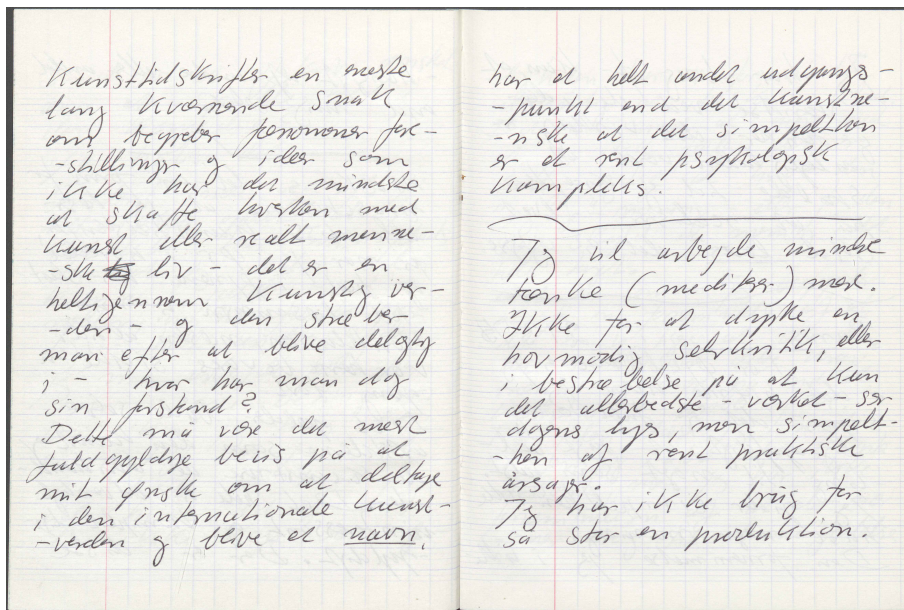 Kunsttidskrifter en eneste
lang kværnende snak
om begreber fænomener fore-
-stillinger og ideer som
ikke har det mindste
at skaffe hverken med
kunst eller realt menne-
-ske liv - det er en
heltigennem kunstig ver-
-den - og den stræber
man efter at blive delagtig
i - hvor har man dog
sin forstand?
Dette må være det mest
fuldgyldige bevis på at
mit ønske om at deltage
i den internationale kunst-
-verden og blive et navn,
har et helt andet udgangs-
-punkt end det kunstne-
-riske at det simpelthen
er et rent psykologisk
kompleks.
Jeg vil arbejde mindre
tænke (meditere) mere.
Ikke for at dyrke en
hovmodig selvkritik, eller
i bestræbelse på at kun
det allerbedste - værket - ser
dagens lys, men simpelt-
-hen af rent praktiske
årsager.
Jeg har ikke brug for
så stor en produktion.